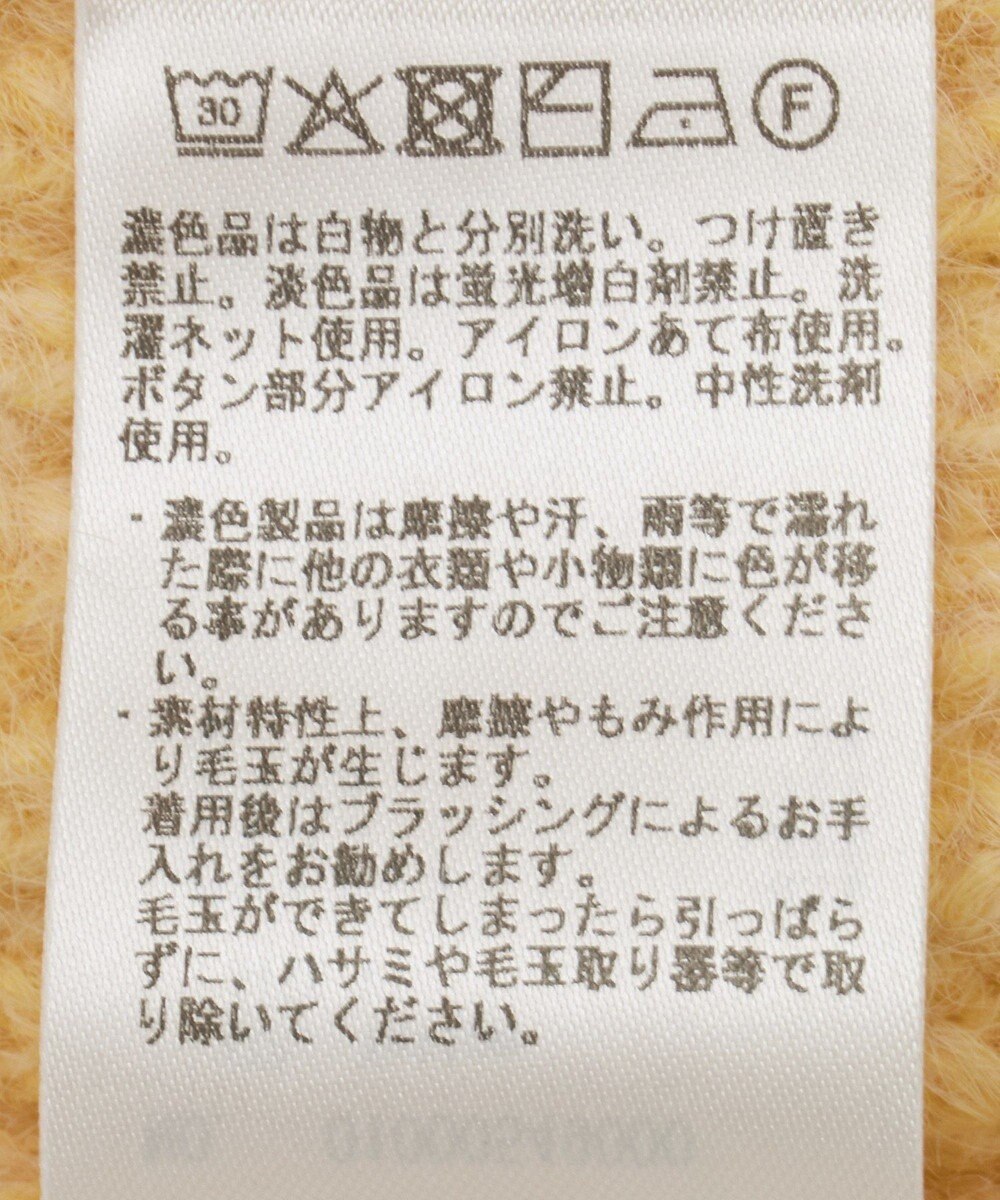 30 F
濃色品は白物と分別洗い。つけ置き
禁止。淡色品は蛍光増白剤禁止。洗
濯ネット使用。アイロンあて布使用。
ボタン部分アイロン禁止。中性洗剤
使用。
・濃色製品は摩擦や汗、雨等で濡れ
た際に他の衣類や小物類に色が移
る事がありますのでご注意くださ
い。
・素材特性上、摩擦やもみ作用によ
り毛玉が生じます。
着用後はブラッシングによるお手
入れをお勧めします。
毛玉ができてしまったら引っぱら
ずに、ハサミや毛玉取り器等で取
り除いてください。